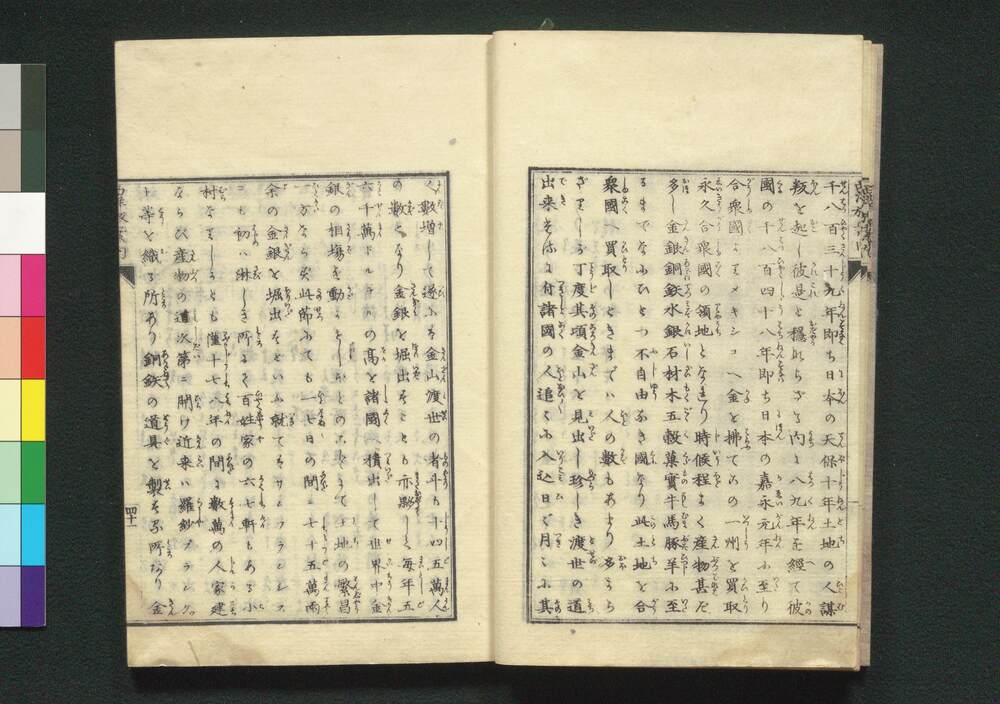 千八百三十九年即ち日本の天保十年土地の人謀
叛を起し彼是と穏ならざる内に八九年を經て彼
國の千八百四十八年即ち日本の嘉永元年に至り
合衆國よりメキシコへ金を拂てこの一州を買取
永久合衆國の領地となれり時候程よく産物甚だ
多し金銀銅鉄水銀石材木五穀菓實牛馬豚羊に至
るまでなにひとつ不自由なき國なり此土地を合
衆國へ買取しときまでハ人の數もあまり多から
ざりしが丁度其頃金山を見出し珍しき渡世の道
出來せしに付諸國の人追々に入込日に月に其
數増して遂にハ金山渡世の者斗も十四五萬人
の數となり金銀を掘出すことも亦夥しく毎年五
六千萬ドルラルの高を諸國へ積出して世界中金
銀の相場を動かし土地の繁昌
ならず此節にても一七日の間に七十五萬兩
余の金銀を掘出すといふ就てはサンフランシス
コも初ハ淋しき所にて百姓家の六七軒もある小
村なりしかども僅十七八年の間に數萬の人家建
ならび産物の道次第に開け近來ハ羅紗フランケ
ット等を織る所あり銅鉄の道具を製する所あり金
四十一